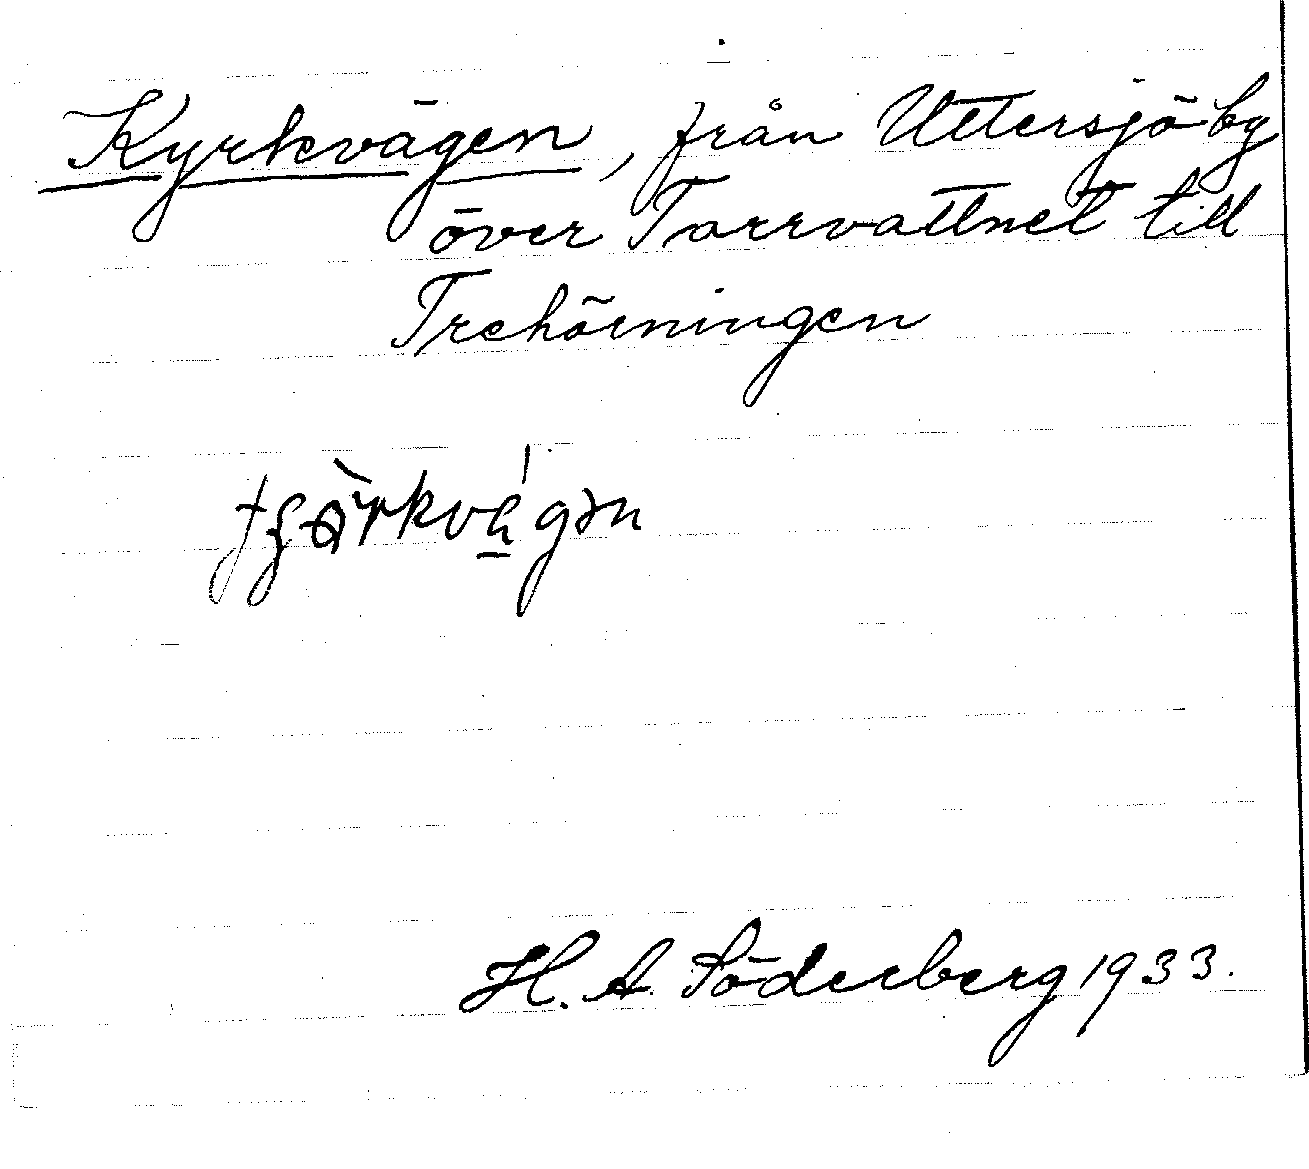 Kyrkvägen, från Uttersjöby
över Tarrvattnet till
Trehörningen
H. A. Söderberg 1933.